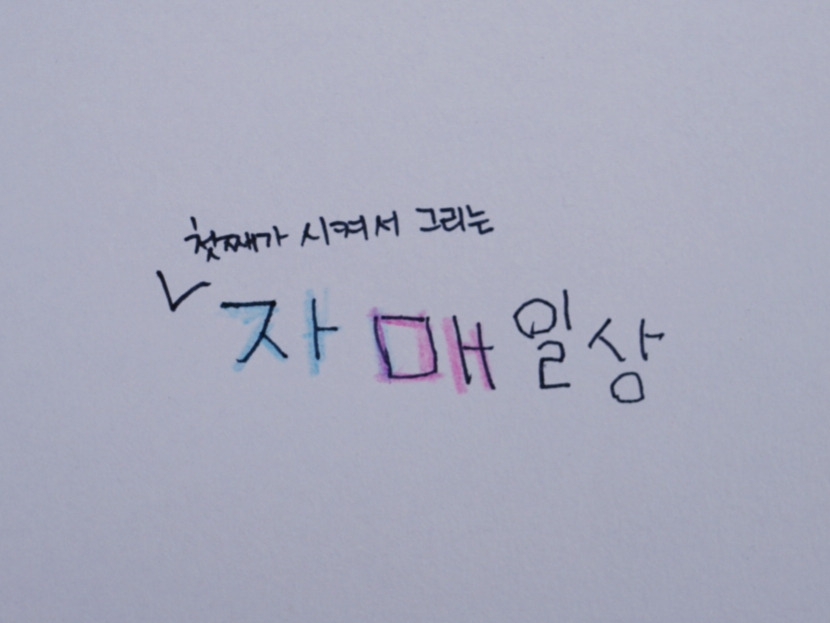 첫째가 시켜서 그리는
자매일상